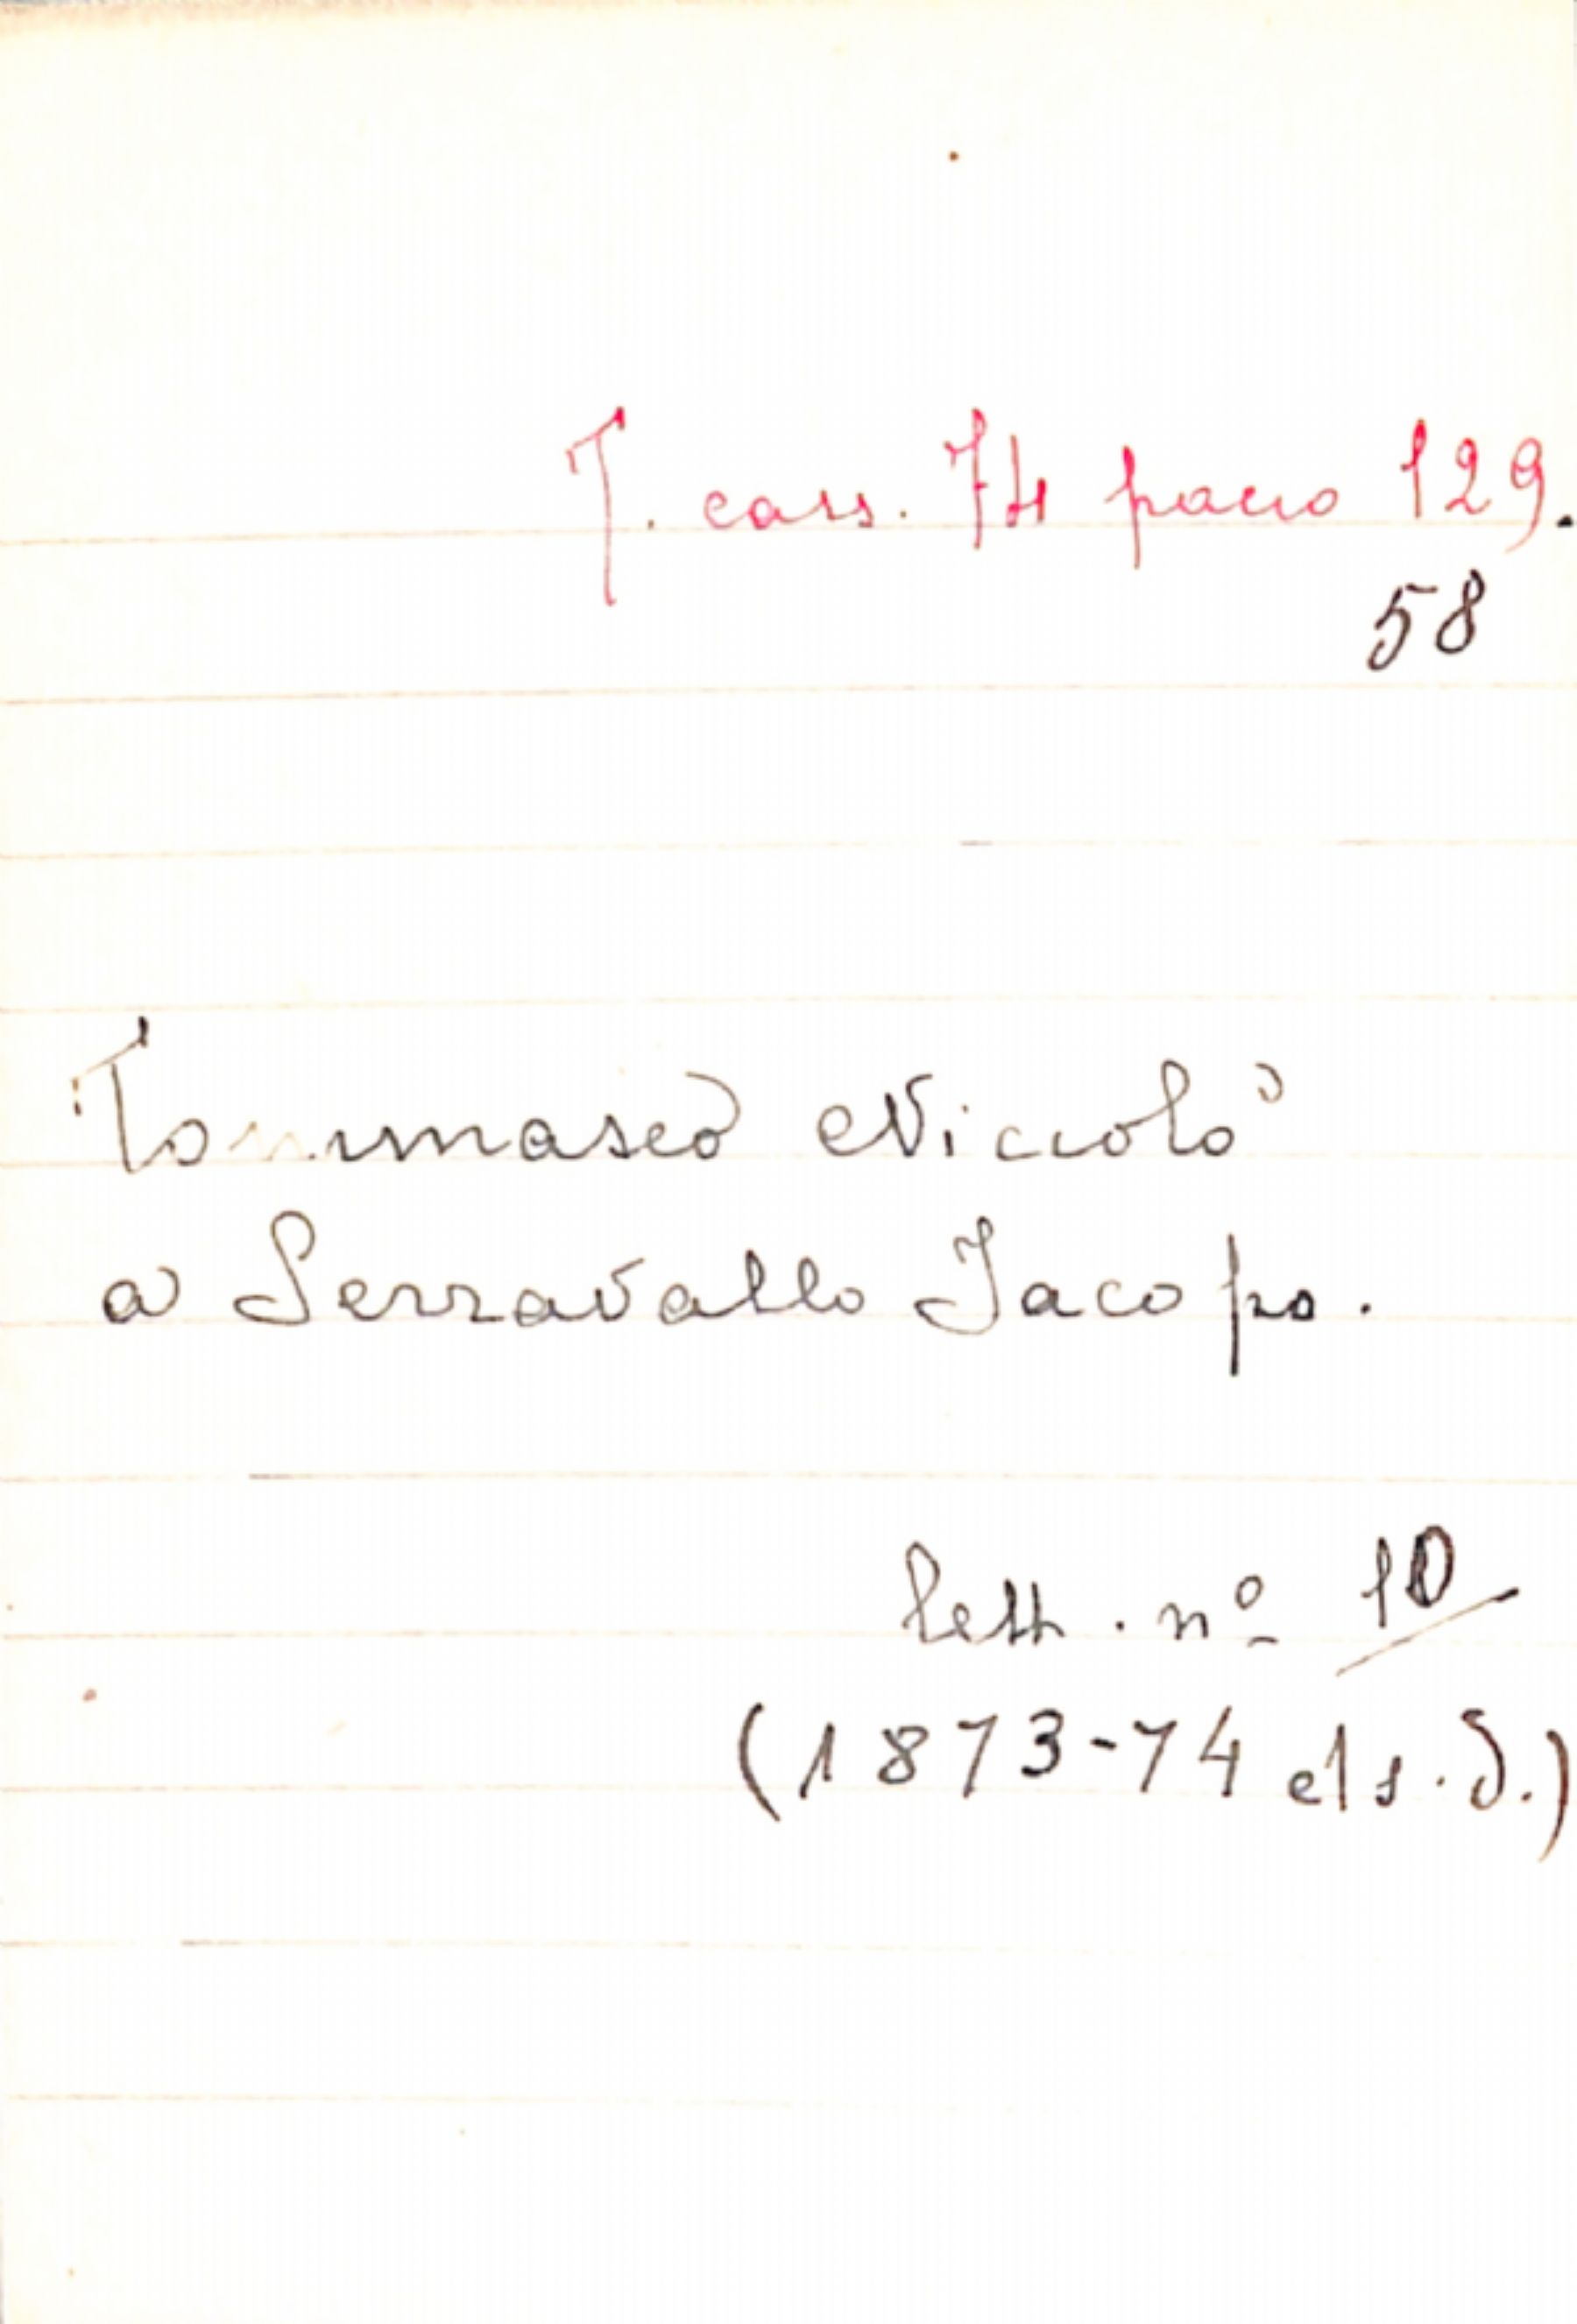 T. cass. 74 pacco 129.
58
Tommaseo Niccolò
a Serravallo Jacopo.
lett. nº 10
(1873-74 e 1 s. d.)